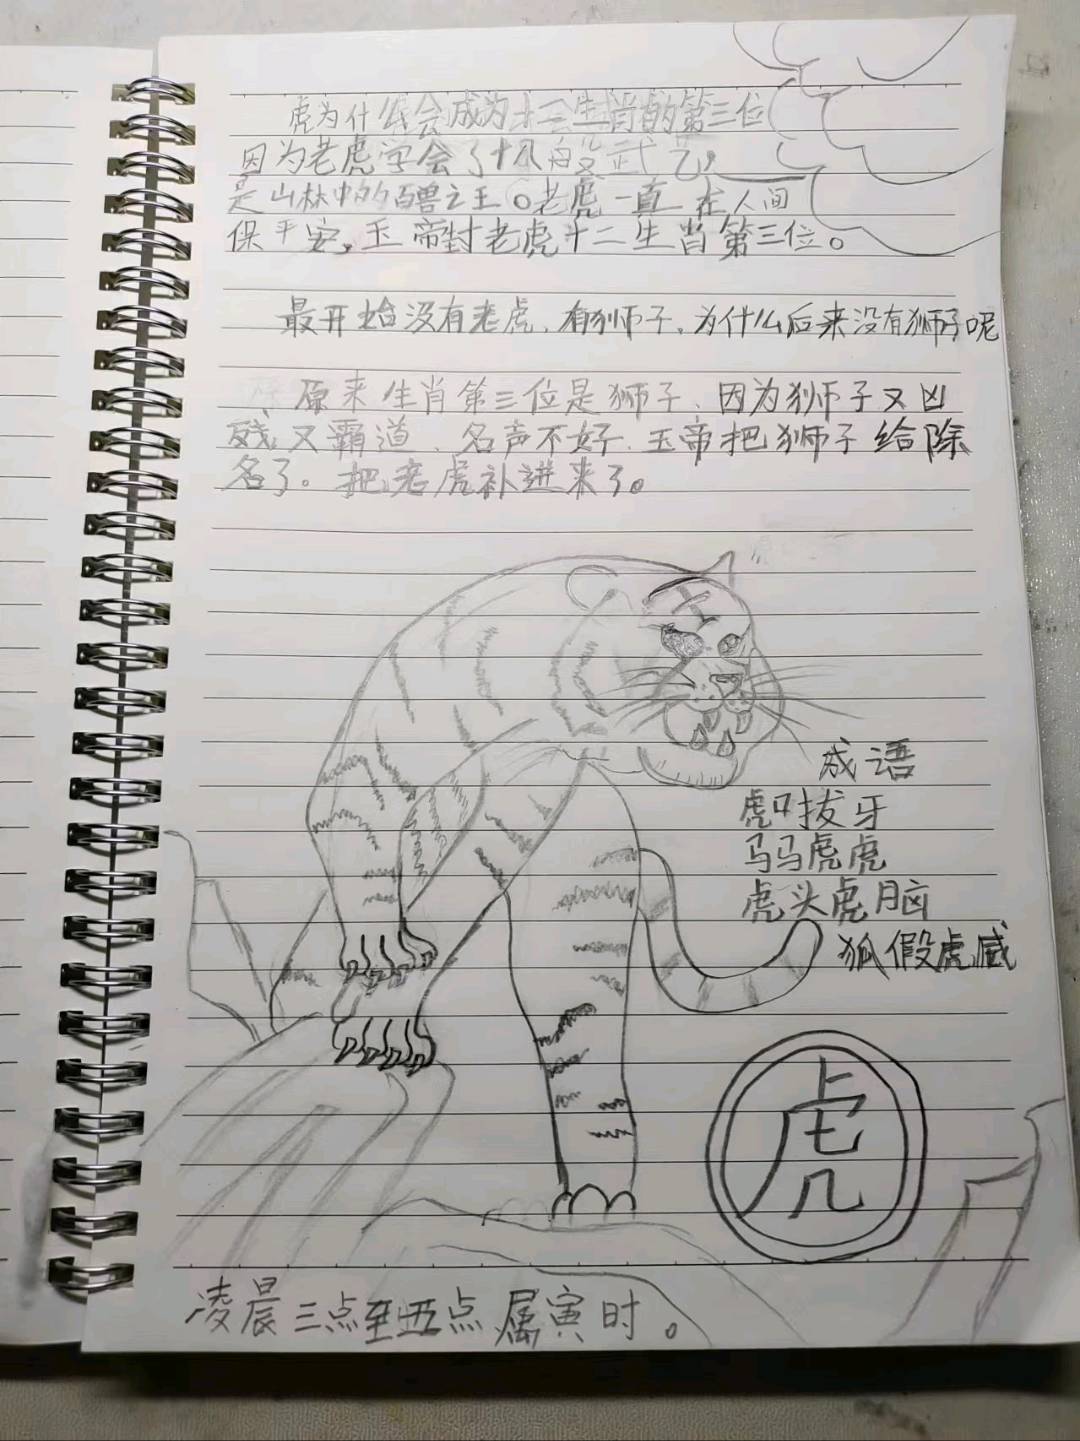 虎为什么会成为十二生肖的第三位
因为老虎学会了十八般武艺，
是山林中的百兽之王。老虎一直在人间
保平安，玉帝封老虎十二生肖第三位。
最开始没有老虎，有狮子，为什么后来没有狮子呢
原来生肖第三位是狮子、因为狮子又凶
残又霸道、名声不好、玉帝把狮子给除
名了。把老虎补进来了。
成语
虎口拔牙
马马虎虎
虎头虎脑
狐假虎威
虎
凌晨三点至五点属寅时。